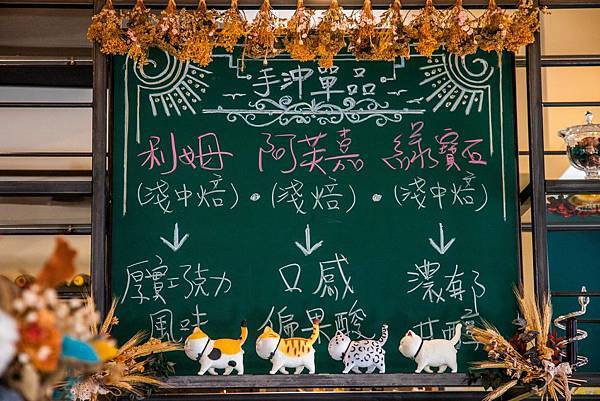 手沖單品
利姆 阿芙嘉 綠寶石
(淺中焙)・(淺焙)・(淺中焙)
厚實巧克力 口感 濃郁
風味 偏果酸